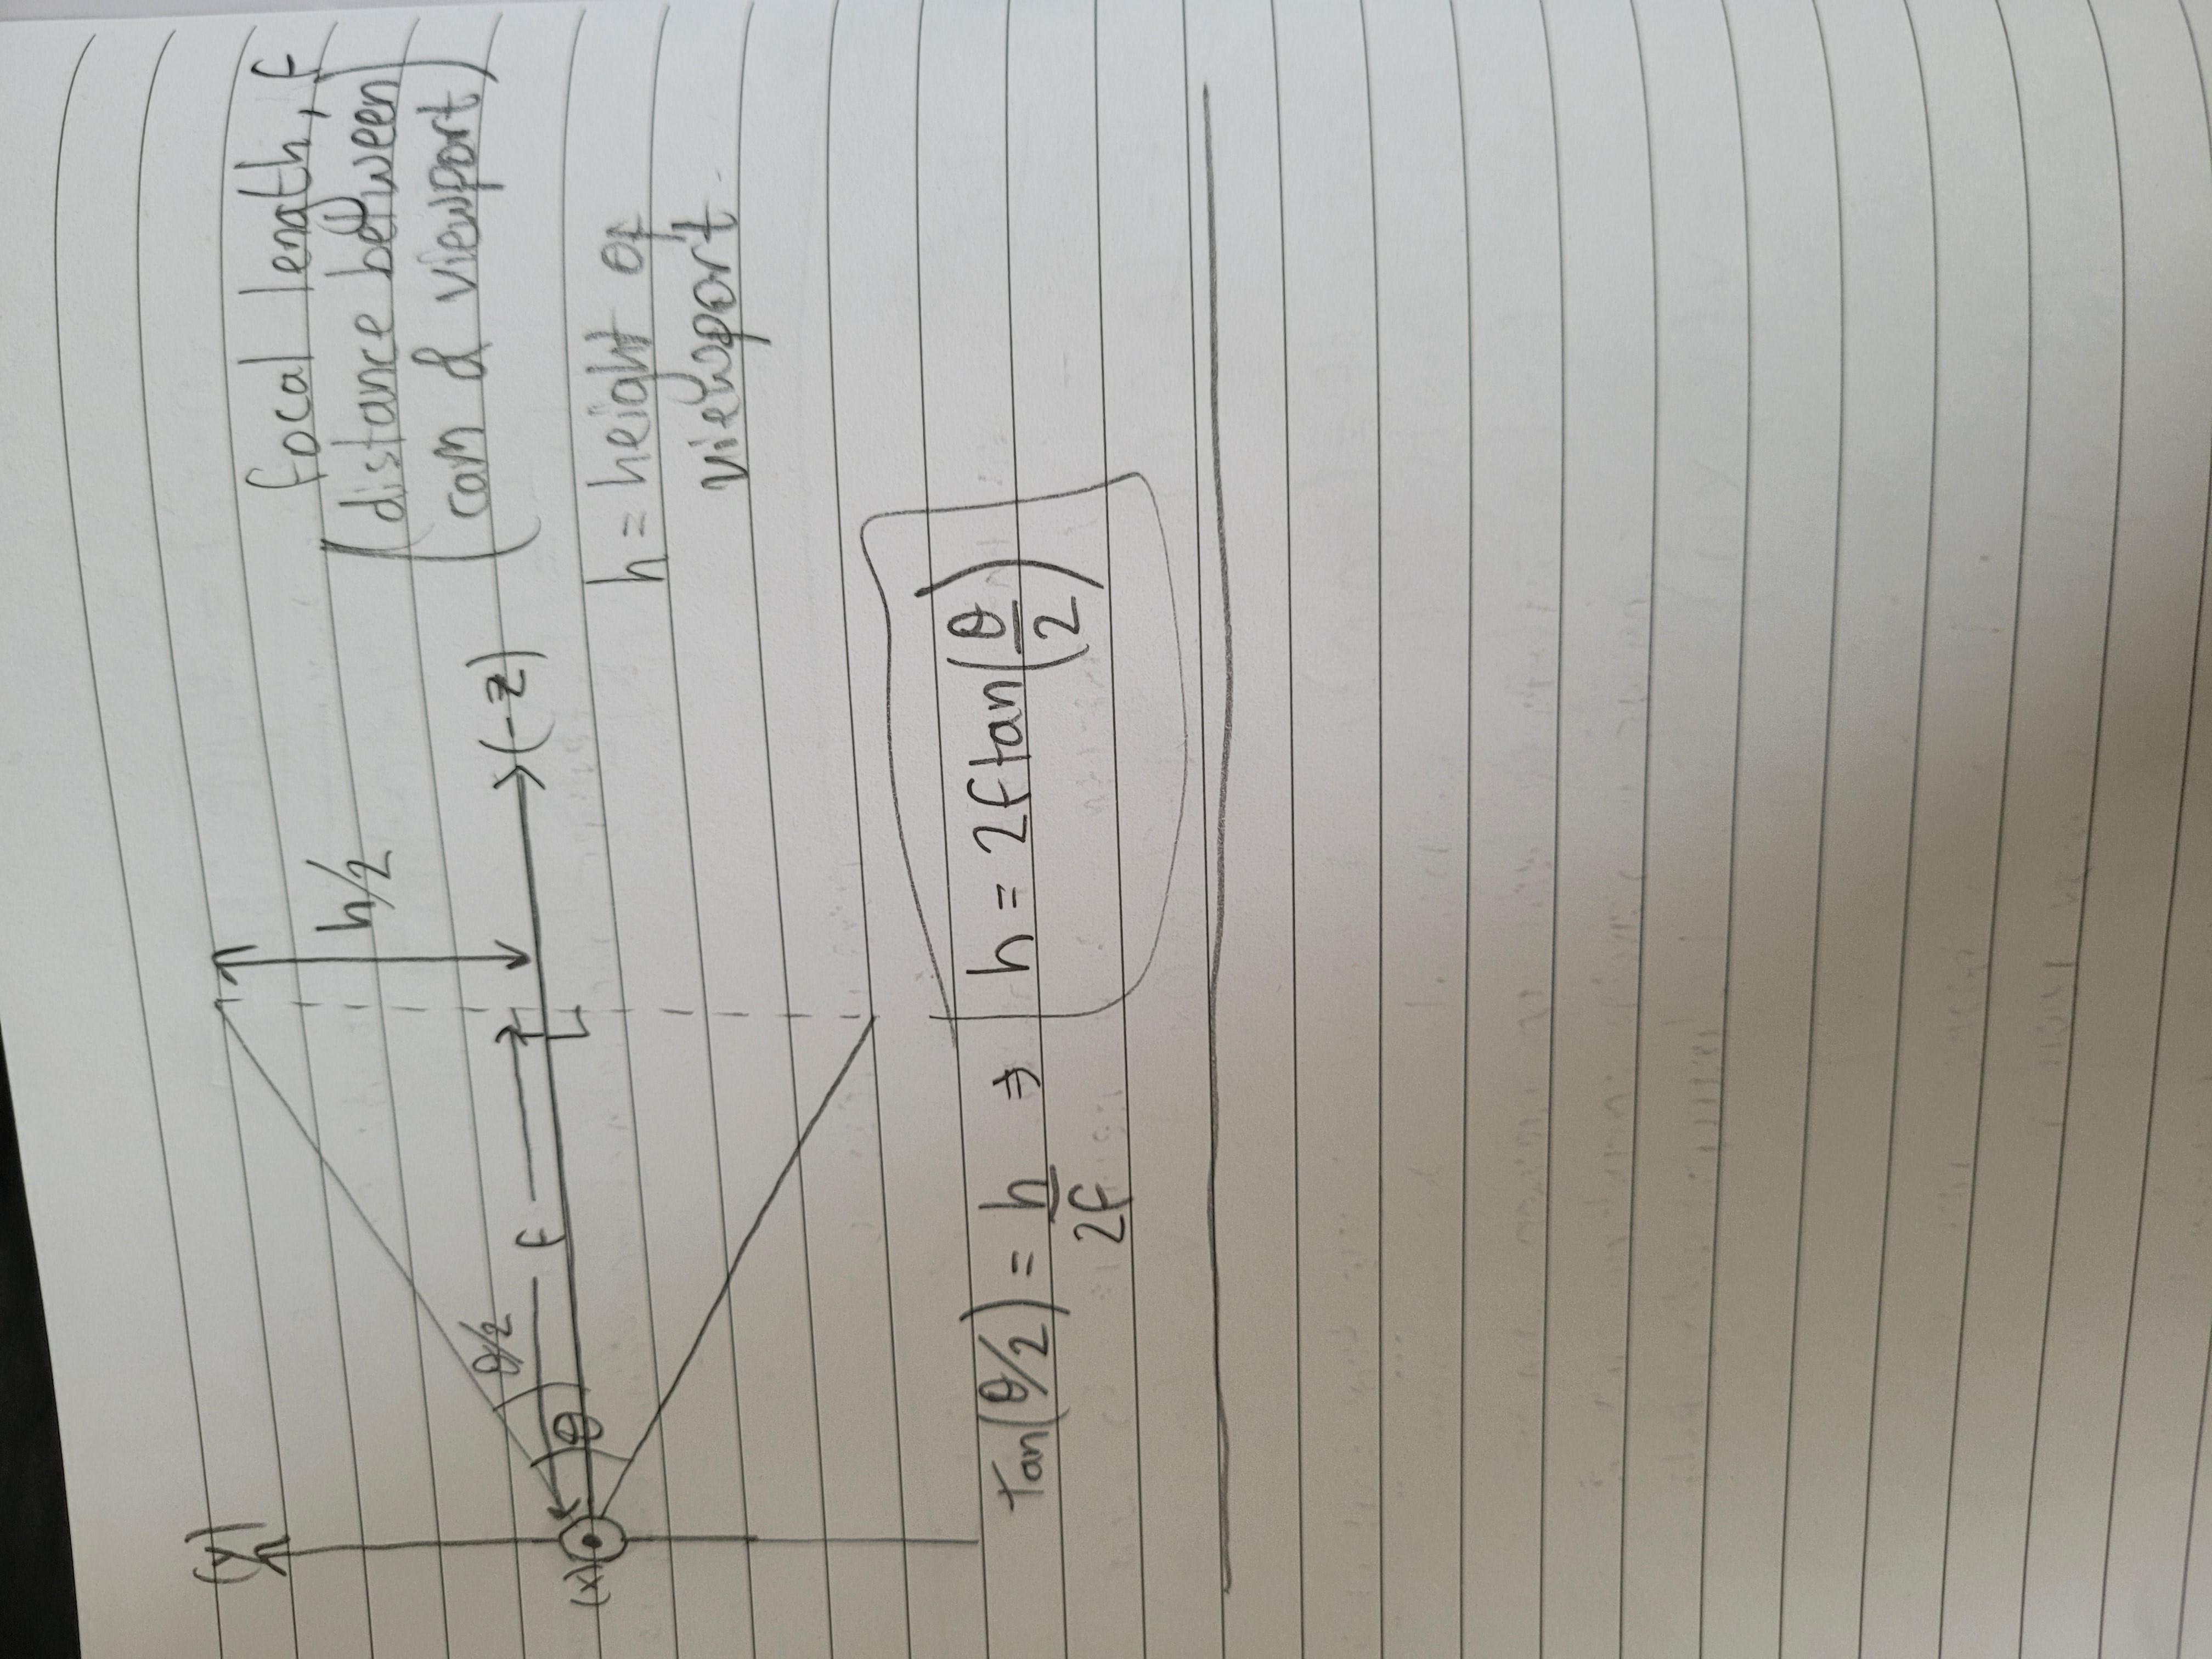 (y)
h/2
focal length, f
(distance between
cam & viewport)
θ/2
f
(-z)
(x)
θ
h = height of
viewport
Tan(θ/2) = h/2f ⇒ h = 2f tan(θ/2)